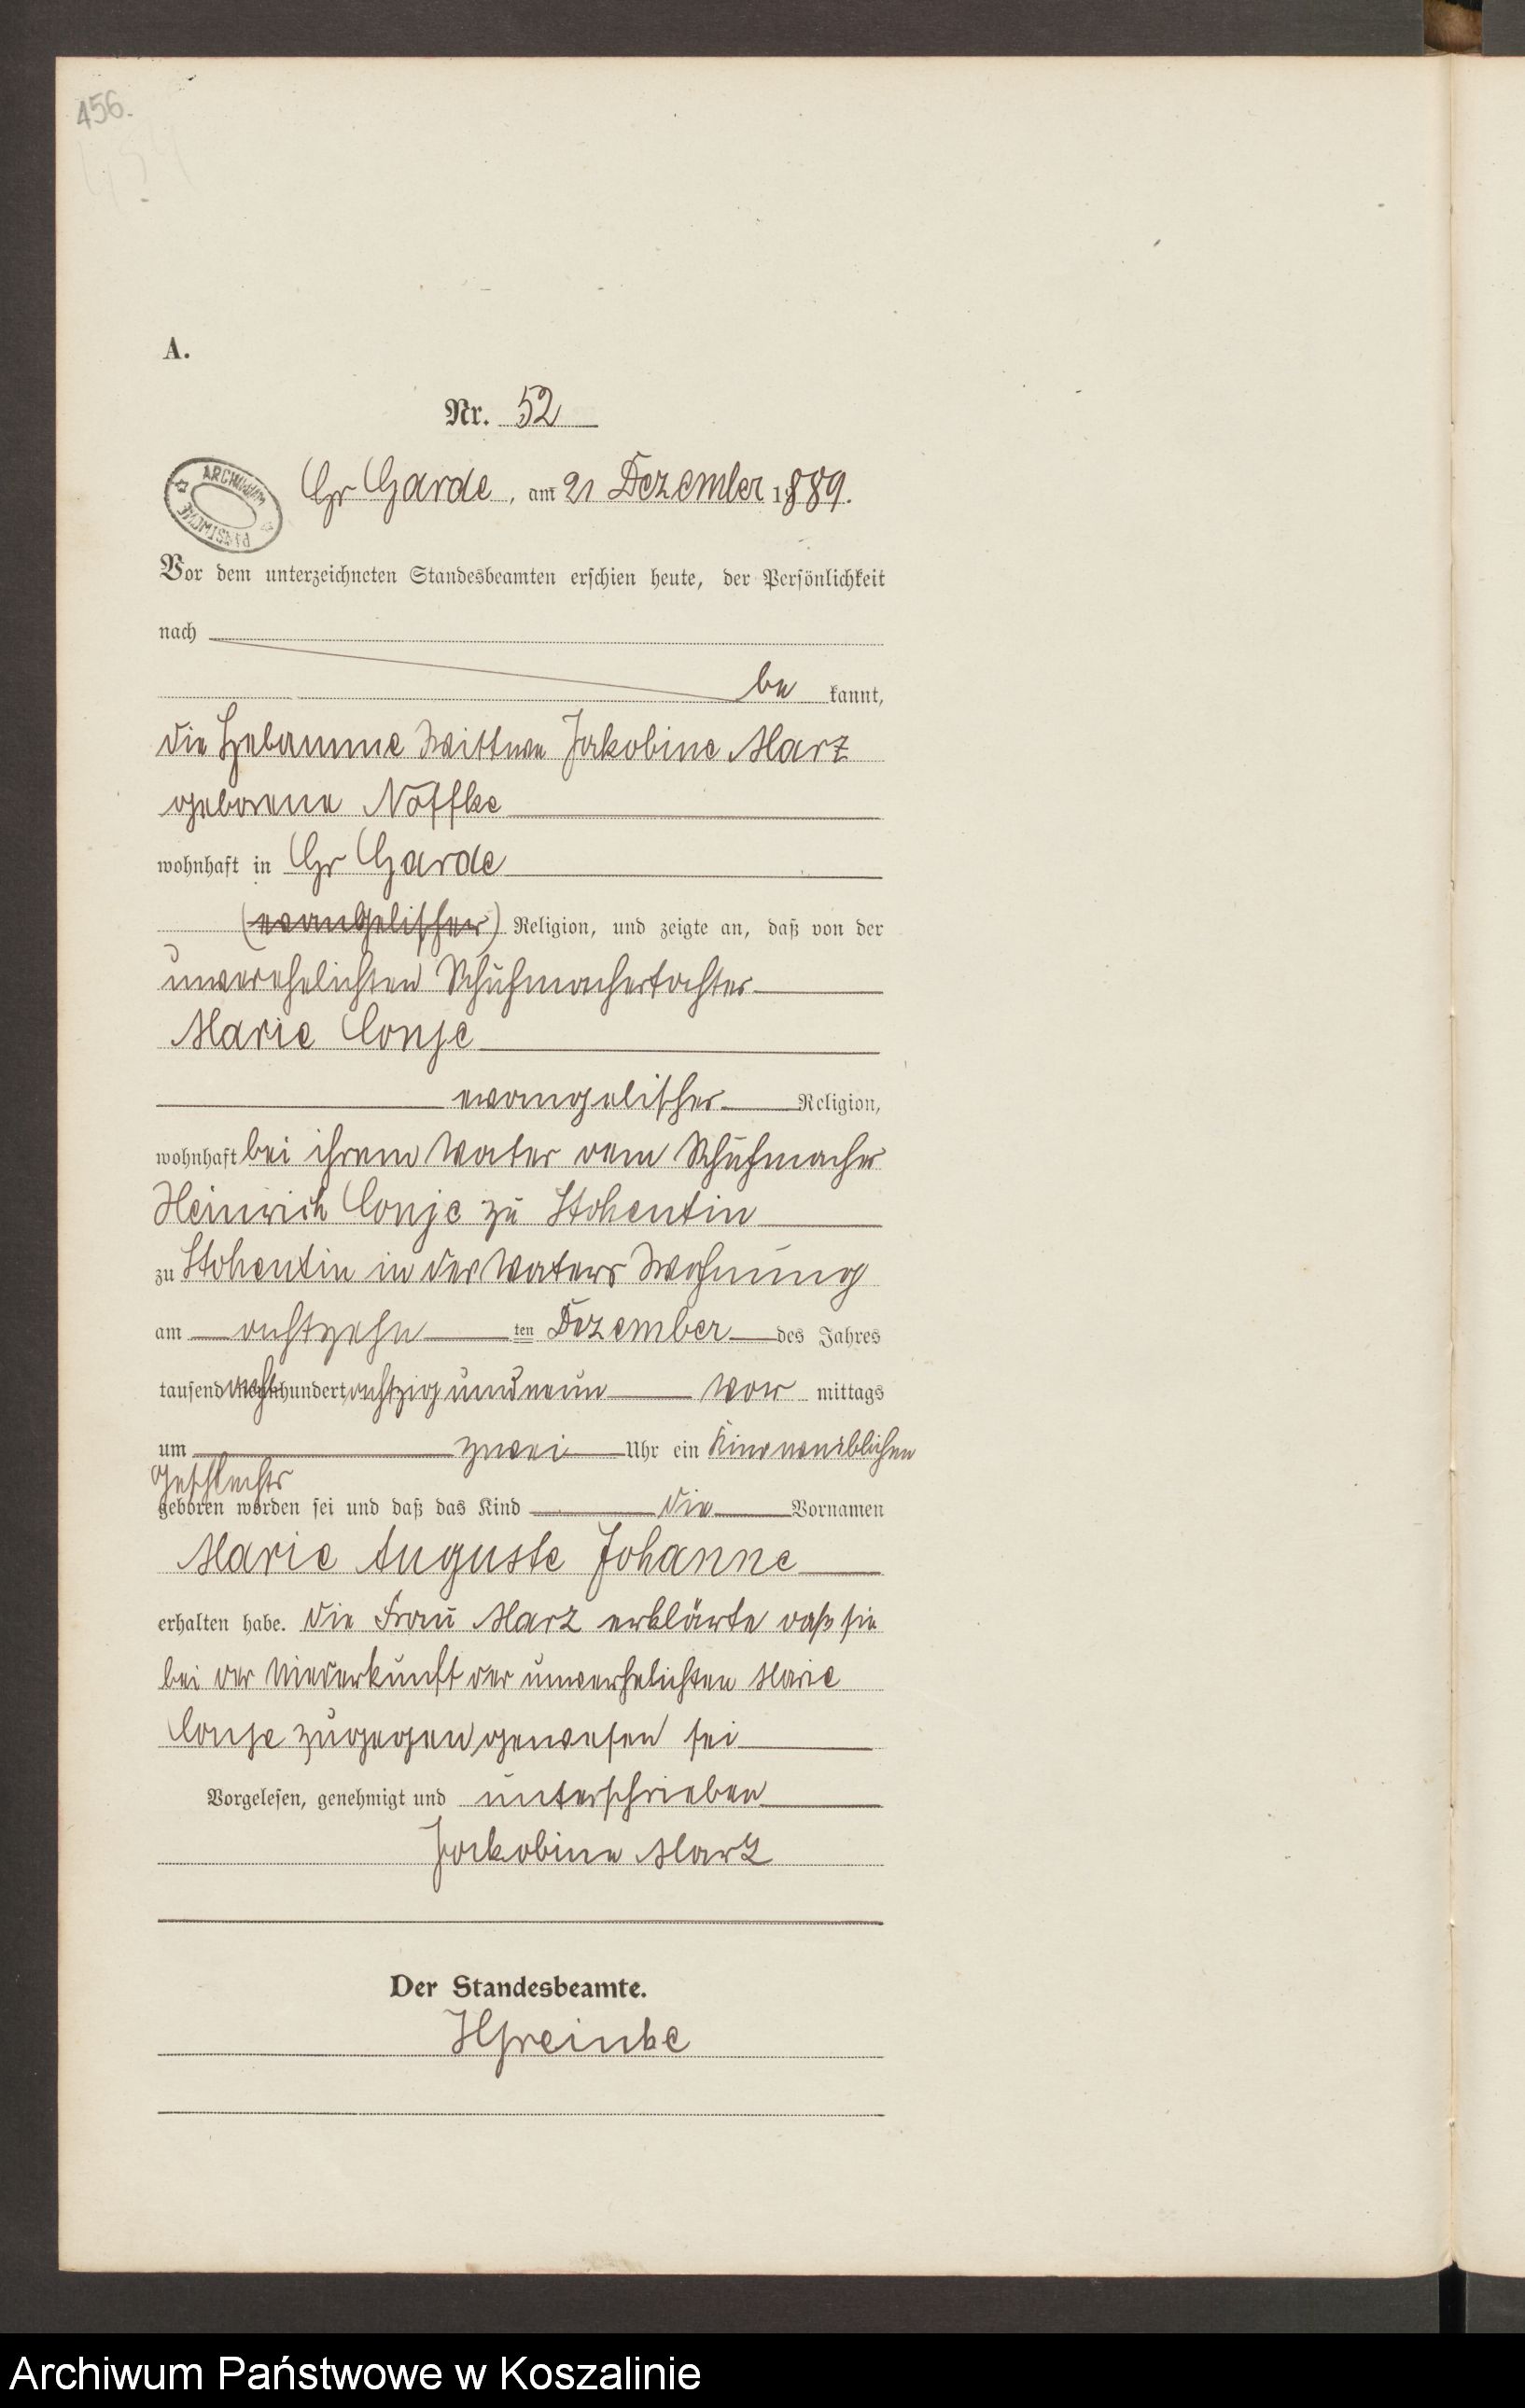 456.
A.
Nr. 52
ARCHIWUM PAŃSTWOWE
Gr Garde, am 21 Dezember 1889.
Vor dem unterzeichneten Standesbeamten erschien heute, der Persönlichkeit
nach
be kannt,
die Hebamme Wittwe Jakobine Marz
geborene Nöffke
wohnhaft in Gr Garde
(evangelischer) Religion, und zeigte an, daß von der
unverehelichten Schuhmachertochter
Marie Conje
evangelischer Religion,
wohnhaft bei ihrem Vater dem Schuhmacher
Heinrich Conje zu Stohentin
zu Stohentin in des Vaters Wohnung
am achtzehn ten Dezember des Jahres
tausend acht hundert achtzig und neun Vor mittags
um zwei Uhr ein Kind weiblichen
Geschlechts
geboren worden sei und daß das Kind die Vornamen
Marie Auguste Johanne
erhalten habe. Die Frau Marz erklärte daß sie
bei der Niederkunft der unverehelichten Marie
Conje zugegen gewesen sei
Vorgelesen, genehmigt und unterschrieben
Jackobine Marz
Der Standesbeamte.
HGreinke
Archiwum Państwowe w Koszalinie